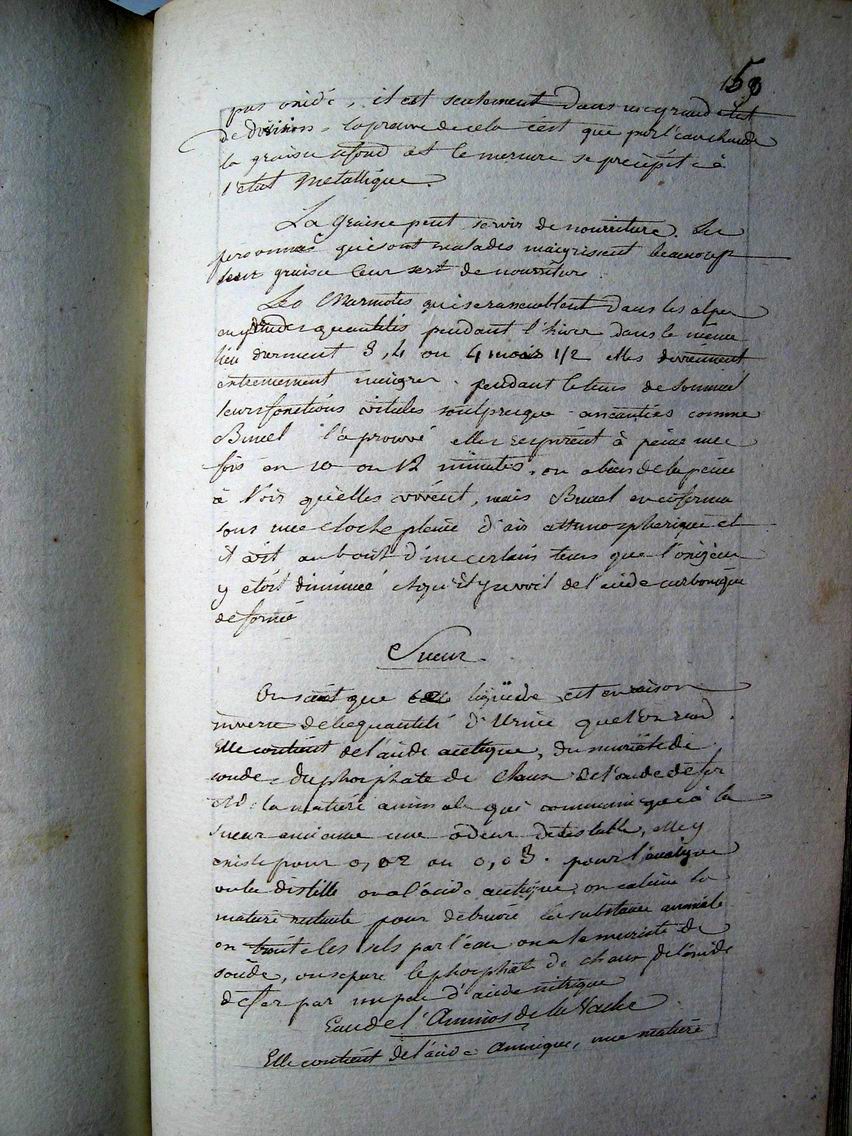 153
pas oxidé, il est seulement dans un grand état
de division. la preuve de cela c'est que par l'eau chaude
la graisse se fond et le mercure se precipite à
l'etat metallique.
La graisse peut servir de nourriture. Les
personnes qui sont malades maigrissent beaucoup
leur graisse leur sert de nourriture.
Les Marmotes qui se rassemblent dans les alpes
en grandes quantités pendant l'hiver dans le meme
lieu dorment 3, 4 ou 4 mois 1/2 elles deviennent
extremement maigres. pendant le tems de sommeil
leurs fonctions vitales sont presque aneanties comme
l'a prouvé elles respirent à peine une
fois en 10 ou 12 minutes, on a bien de la peine
à voir qu'elles vivent, mais en enferma
sous une cloche pleine d'air atthmospherique et
il vit au bout d'un certain tems que l'oxigene
y étoit diminué et qu'il y avoit de l'acide carbonique
de formé
Sueur.
On sait que ce liquide est en raison
inverse de la quantité d'Urine que l'on rend.
Elle contient de l'acide acetique, du muriate de
soude, du phosphate de chaux de l'oxide de fer
et la matiere animale qui communique à la
sueur ancienne une odeur detestable, elle y
existe pour 0,02 ou 0,03. pour l'analyse
on la distille on a l'acide acetique, on calcine la
matiere restante pour detruire la substance animale
on traite les sels par l'eau on a le muriate de
soude, on separe le phosphate de chaux de l'oxide
de fer par un peu d'acide nitrique
Eau de l'Amnios de la Vache.
Elle contient de l'acide Amnique, une matiere